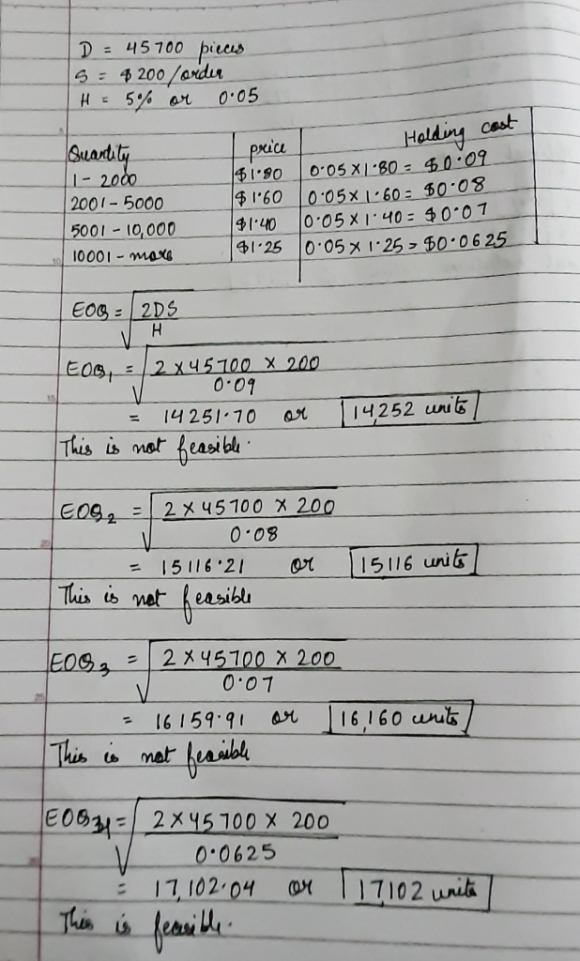 D = 45700 pieces
S = $200/order
H = 5% or 0.05
Quantity price Holding cost
1-2000 $1.80 0.05×1.80 = $0.09
2001-5000 $1.60 0.05×1.60 = $0.08
5001-10,000 $1.40 0.05×1.40 = $0.07
10001-more $1.25 0.05×1.25 = $0.0625
EOQ = √2DS/H
EOQ₁ = √2×45700×200/0.09
= 14251.70 or 14,252 units
This is not feasible.
EOQ₂ = √2×45700×200/0.08
= 15116.21 or 15116 units
This is not feasible
EOQ₃ = √2×45700×200/0.07
= 16159.91 or 16,160 units
This is not feasible
EOQ₄ = √2×45700×200/0.0625
= 17,102.04 or 17,102 units
This is feasible.